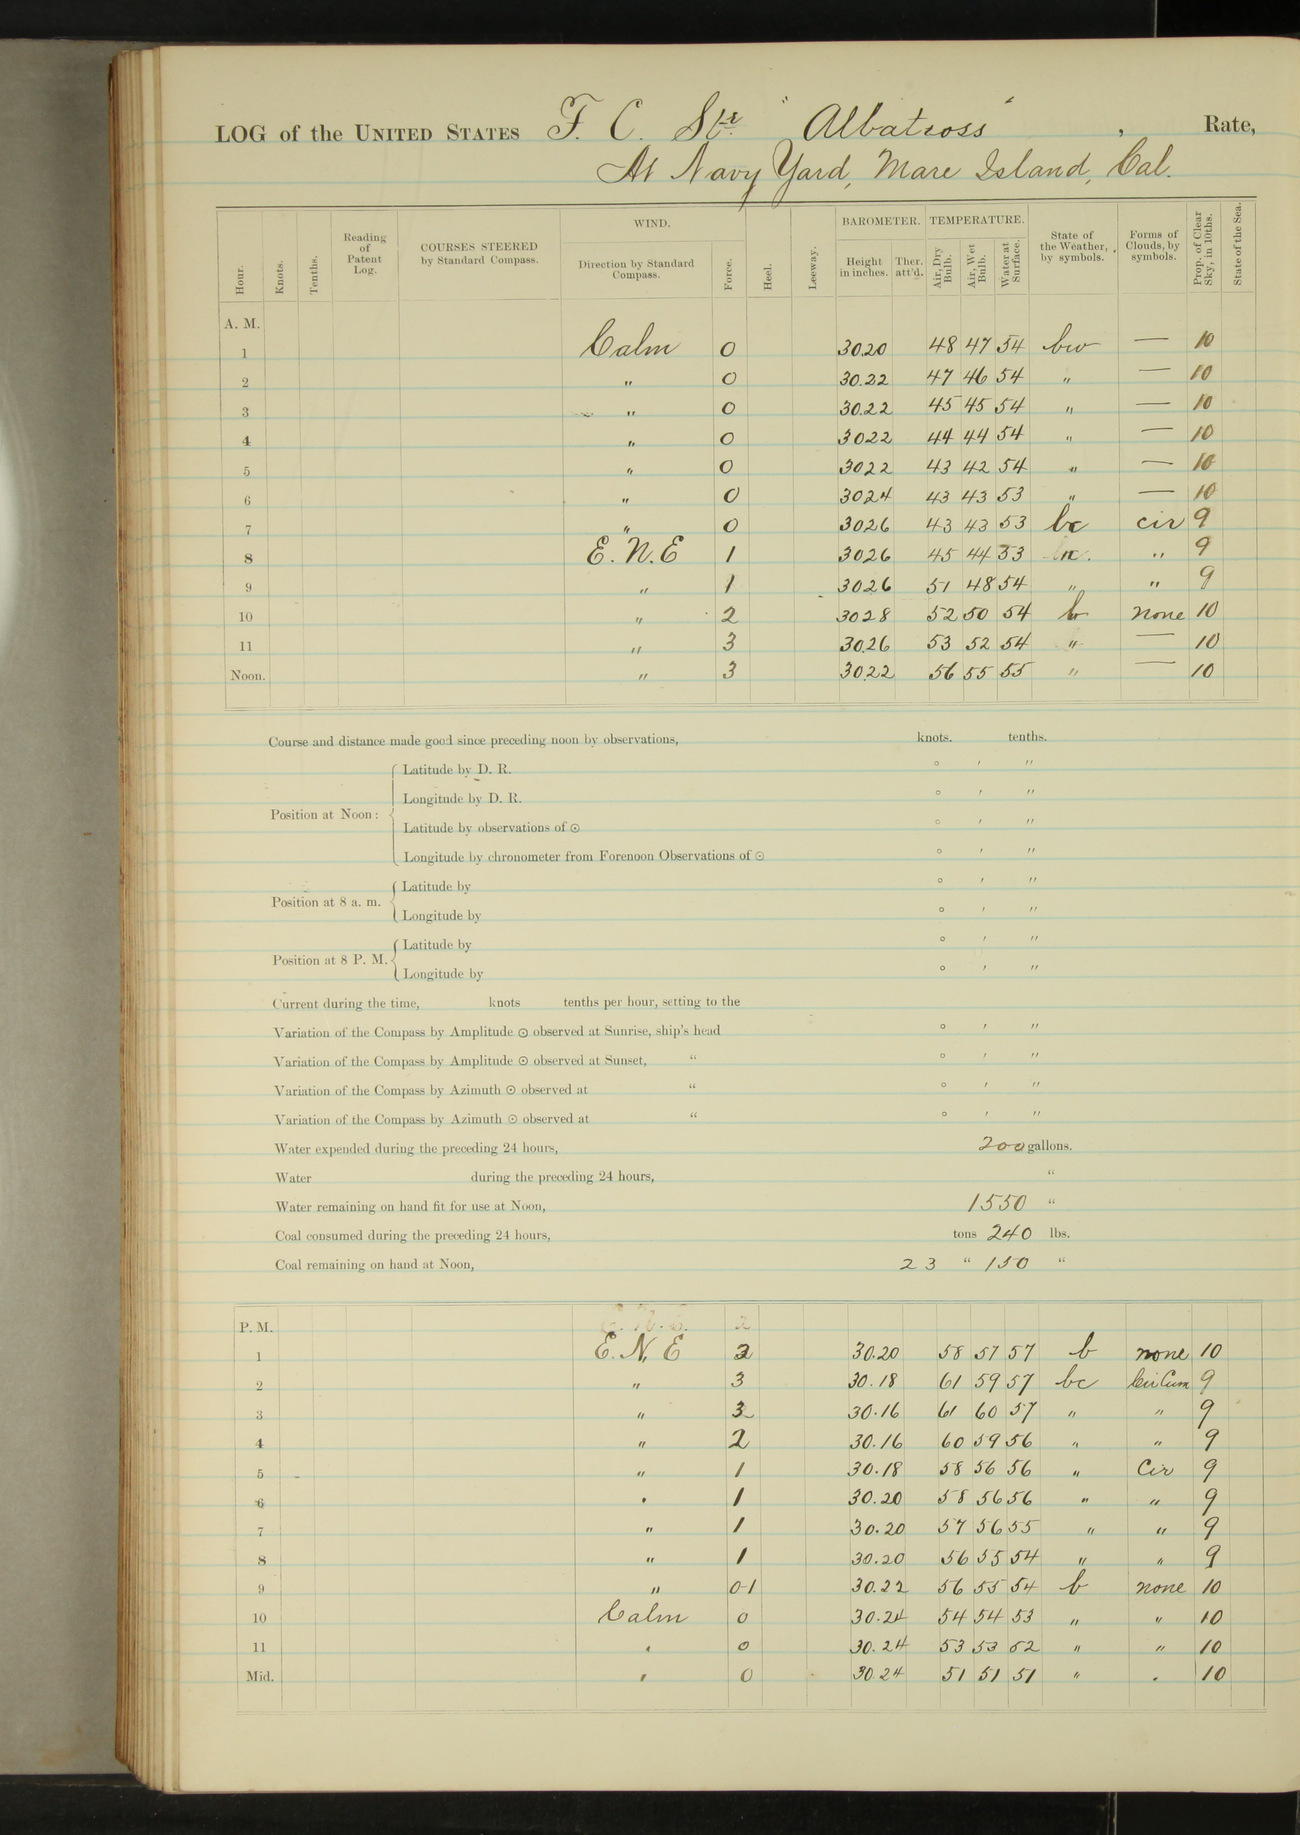 LOG of the UNITED STATES F. C. Str. "Albatross", Rate,
At Navy Yard, Mare Island, Cal.
Hour. Knots. Tenths. Reading of Patent Log. COURSES STEERED by Standard Compass. WIND. Direction by Standard Compass. Force. Heel. Leeway. BAROMETER. Height in inches. Ther. att'd. TEMPERATURE. Air, Dry Bulb. Air, Wet Bulb. Water at Surface. State of the Weather, by symbols. Forms of Clouds, by symbols. Prop. of Clear Sky, in 10ths. State of the Sea.
A. M.
1 Calm 0 30.20 48 47 54 bw — 10
2 " 0 30.22 47 46 54 " — 10
3 " 0 30.22 45 45 54 " — 10
4 " 0 3022 44 44 54 " — 10
5 " 0 3022 43 42 54 " — 10
6 " 0 3024 43 43 53 " — 10
7 " 0 3026 43 43 53 bc cir 9
8 E. N. E 1 3026 45 44 53 bc. " 9
9 " 1 3026 51 48 54 " " 9
10 " 2 3028 52 50 54 b none 10
11 " 3 30.26 53 52 54 " — 10
Noon. " 3 30.22 56 55 55 " — 10
Course and distance made good since preceding noon by observations, knots. tenths.
Position at Noon: Latitude by D. R. ° ′ ″
Longitude by D. R. ° ′ ″
Latitude by observations of ☉ ° ′ ″
Longitude by chronometer from Forenoon Observations of ☉ ° ′ ″
Position at 8 a. m. Latitude by ° ′ ″
Longitude by ° ′ ″
Position at 8 P. M. Latitude by ° ′ ″
Longitude by ° ′ ″
Current during the time, knots tenths per hour, setting to the
Variation of the Compass by Amplitude ☉ observed at Sunrise, ship's head ° ′ ″
Variation of the Compass by Amplitude ☉ observed at Sunset, “ ° ′ ″
Variation of the Compass by Azimuth ☉ observed at “ ° ′ ″
Variation of the Compass by Azimuth ☉ observed at “ ° ′ ″
Water expended during the preceding 24 hours, 200 gallons.
Water during the preceding 24 hours, “
Water remaining on hand fit for use at Noon, 1550 “
Coal consumed during the preceding 24 hours, tons 240 lbs.
Coal remaining on hand at Noon, 23 “ 150 “
P. M. E. N. E. 2
1 E. N. E 2 30.20 58 57 57 b none 10
2 " 3 30.18 61 59 57 bc Cir Cum 9
3 " 3 30.16 61 60 57 " " 9
4 " 2 30.16 60 59 56 " " 9
5 " 1 30.18 58 56 56 " Cir 9
6 " 1 30.20 58 56 56 " " 9
7 " 1 30.20 57 56 55 " " 9
8 " 1 30.20 56 55 54 " " 9
9 " 0-1 30.22 56 55 54 b none 10
10 Calm 0 30.24 54 54 53 " " 10
11 " 0 30.24 53 53 52 " " 10
Mid. " 0 30.24 51 51 51 " " 10